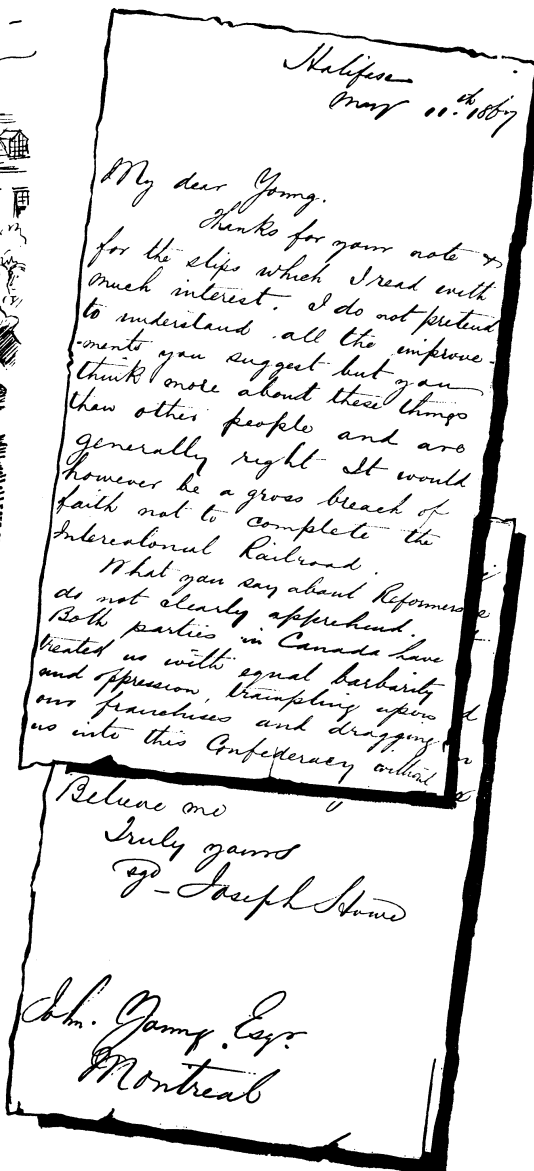 Halifax
May 11th. 1867
My dear Young.
Thanks for your note &
for the slips which I read with
much interest. I do not pretend
to understand all the improve-
-ments you suggest but you
think more about these things
than other people and are
generally right It would
however be a gross breach of
faith not to complete the
Intercolonial Railroad.
What you say about Reformers I
do not clearly apprehend.
Both parties in Canada have
treated us with equal barbarity
and oppression, trampling upon
our franchises and dragging
us into this Confederacy without
Believe me
Truly yours
sgd - Joseph Howe
John. Young. Esqr.
Montreal